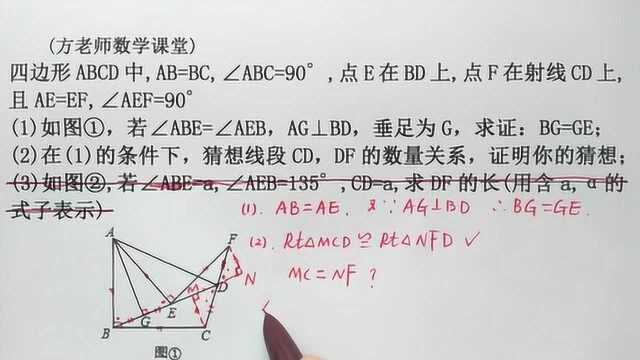 (方老师数学课堂)
四边形 ABCD 中,AB=BC,∠ABC=90°,点 E 在 BD 上,点 F 在射线 CD 上,
且 AE=EF,∠AEF=90°
(1)如图①,若∠ABE=∠AEB,AG⊥BD,垂足为 G,求证:BG=GE;
(2)在(1)的条件下,猜想线段 CD,DF 的数量关系,证明你的猜想;
(3)如图②,若∠ABE=a,∠AEB=135°,CD=a,求 DF 的长(用含 a,α 的
式子表示)
(1). AB=AE. 又∵AG⊥BD ∴BG=GE.
(2). Rt△MCD≌Rt△NFD ✓
MC=NF ?
A
F
M
N
D
E
G
B
C
图①